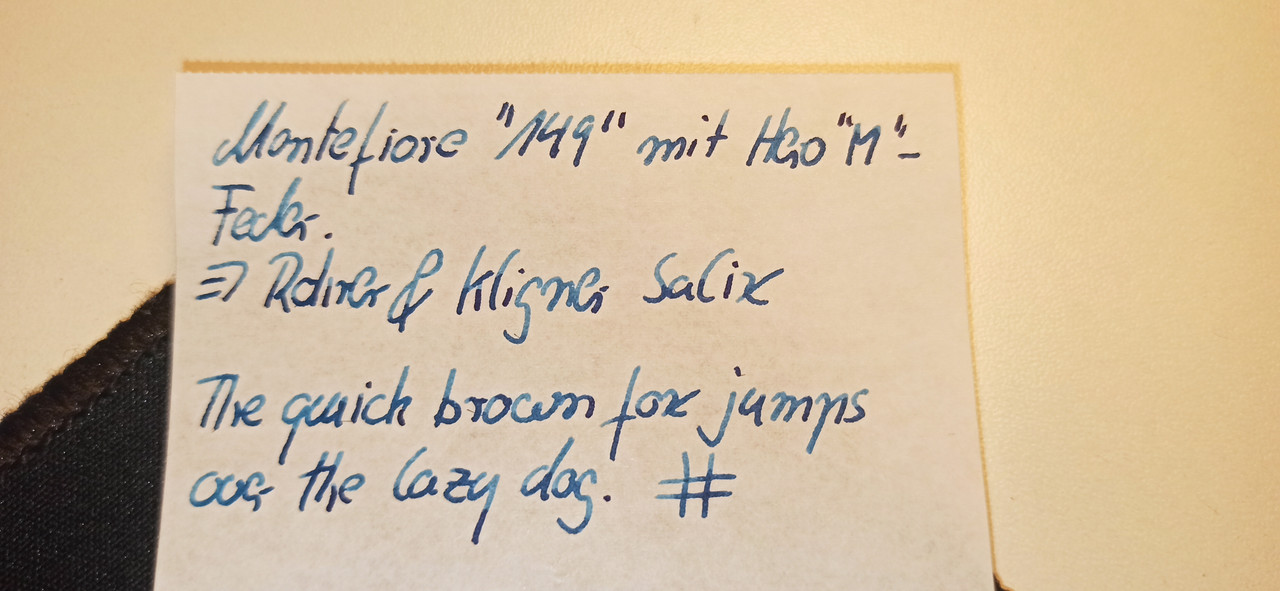 Montefiore "149" mit Hero "M"-
Feder.
=> Rohrer & Kligner Salix
The quick brown fox jumps
over the lazy dog. #